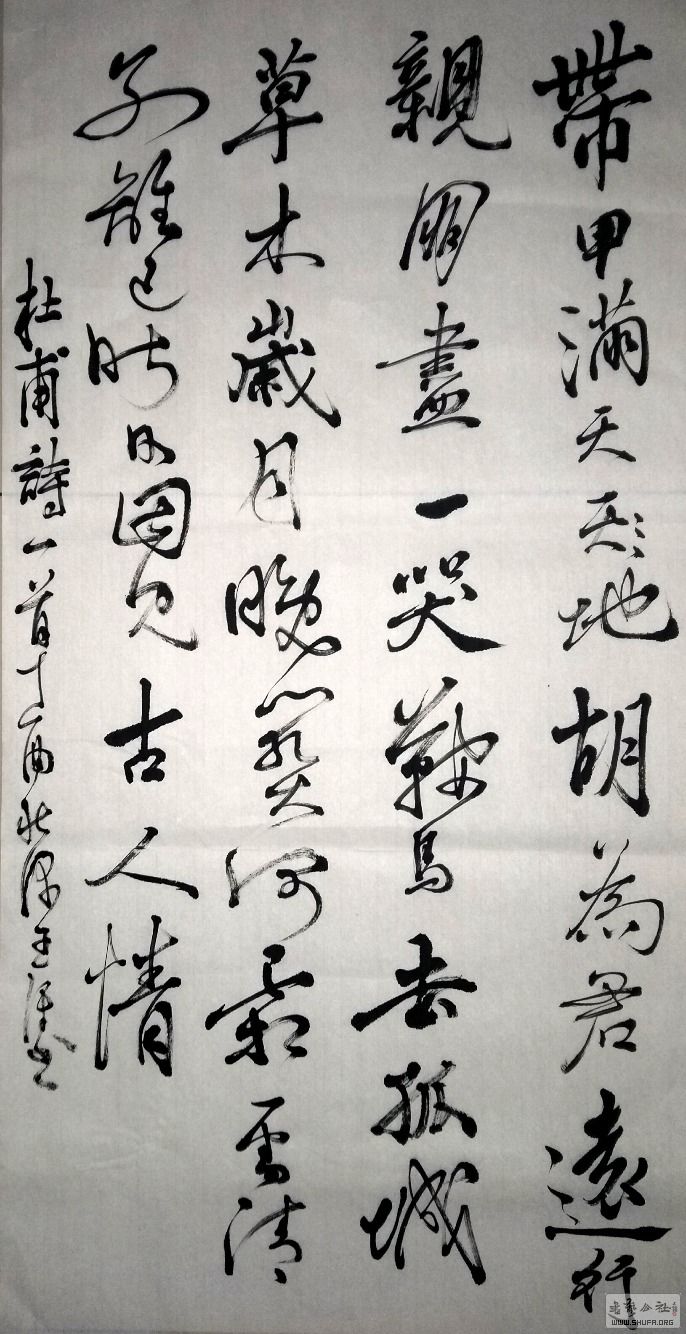 帶甲滿天地胡為君遠行
親朋盡一哭鞍馬去孤城
草木歲月晚關河霜雪清
別離已昨日因見古人情
杜甫詩一首王書
書藝公社
WWW.SHUFA.ORG